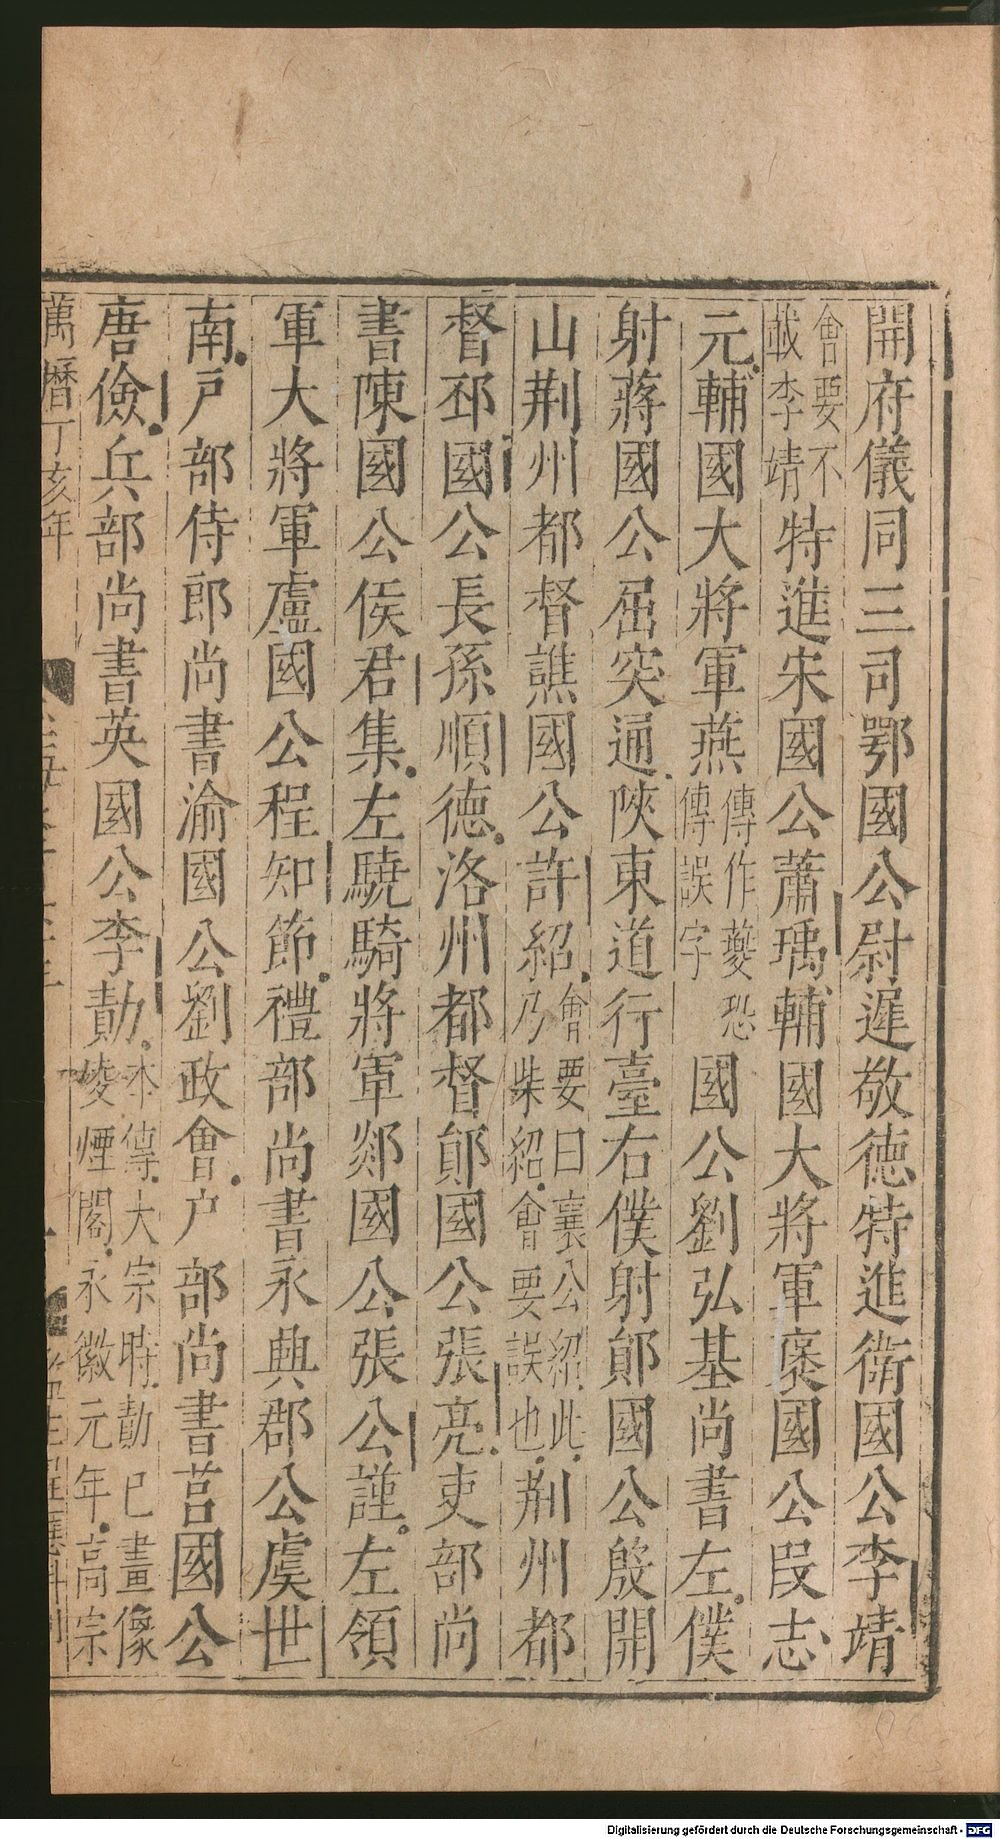 開府儀同三司鄂國公尉遲敬德特進衛國公李靖
會要不
載李靖
特進宋國公蕭瑀輔國大將軍褒國公段志
元輔國大將軍燕
傳作夔恐
傳誤字
國公劉弘基尚書左僕
射蔣國公屈突通陝東道行臺右僕射鄖國公殷開
山荆州都督譙國公許紹
會要曰襄公紹此
乃柴紹會要誤也
荆州都
督邳國公長孫順德洛州都督鄖國公張亮吏部尚
書陳國公侯君集左驍騎將軍郯國公張公謹左領
軍大將軍盧國公程知節禮部尚書永興郡公虞世
南戶部侍郎尚書渝國公劉政會户部尚書莒國公
唐儉兵部尚書英國公李勣
本傳大宗時勣已畫像
凌煙閣永徽元年高宗
萬曆丁亥年
Digitalisierung gefördert durch die Deutsche Forschungsgemeinschaft - DFG